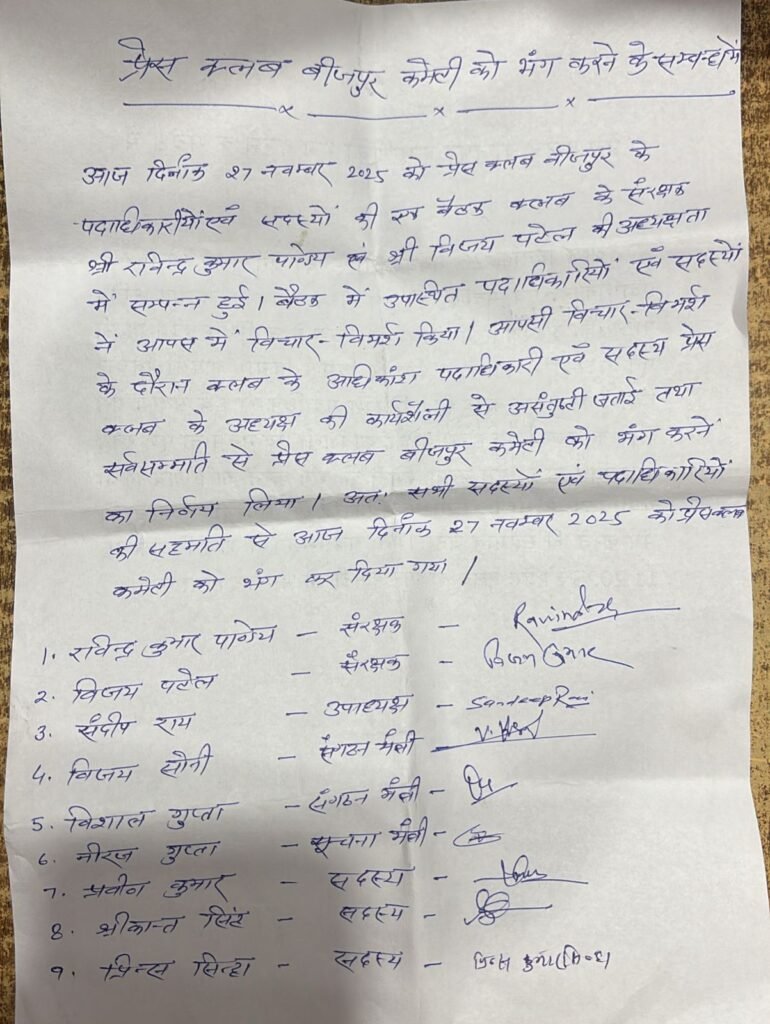 प्रेस क्लब बीजपुर कमेटी को भंग करने के सम्बन्ध में
आज दिनाँक 27 नवम्बर 2025 को प्रेस क्लब बीजपुर के
पदाधिकारीयों एवं सदस्यों की एक बैठक क्लब के संरक्षक
श्री रविन्द्र कुमार पाण्डेय एवं श्री विजय पटेल की अध्यक्षता
में सम्पन्न हुई। बैठक में उपस्थित पदाधिकारियों एवं सदस्यों
नें आपस में विचार-विमर्श किया। आपसी विचार-विमर्श
के दौरान क्लब के अधिकांश पदाधिकारी एवं सदस्य प्रेस
क्लब के अध्यक्ष की कार्यशैली से असंतुष्टी जताई तथा
सर्वसम्मति से प्रेस क्लब बीजपुर कमेटी को भंग करनें
का निर्णय लिया। अतः सभी सदस्यों एवं पदाधिकारियों
की सहमति से आज दिनाँक 27 नवम्बर 2025 को प्रेस क्लब
कमेटी को भंग कर दिया गया।
1. रविन्द्र कुमार पाण्डेय - संरक्षक -
2. विजय पटेल - संरक्षक -
3. संदीप राय - उपाध्यक्ष - Sandeep Rai
4. विजय सोनी - संगठन मंत्री
5. विशाल गुप्ता - संगठन मंत्री -
6. नीरज गुप्ता - सूचना मंत्री -
7. प्रवीण कुमार - सदस्य -
8. श्रीकान्त सिंह - सदस्य -
9. प्रिन्स सिन्हा - सदस्य - प्रिन्स कुमार सिन्हा